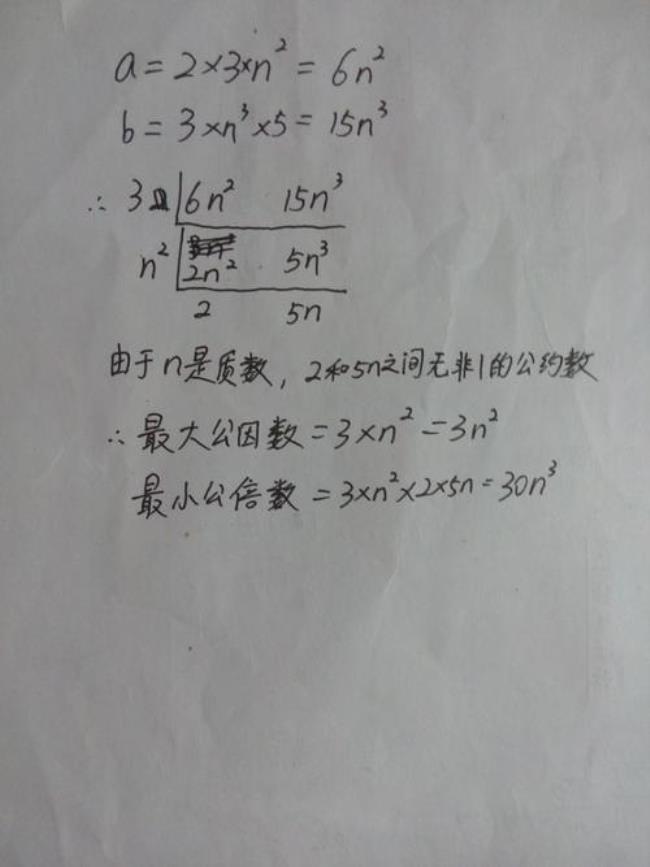 a = 2×3×n² = 6n²
b = 3×n³×5 = 15n³
∴ 3 6n² 15n³
n² 2n² 5n³
2 5n
由于n是质数，2和5n之间无非1的公约数
∴最大公因数=3×n²=3n²
最小公倍数=3×n²×2×5n=30n³